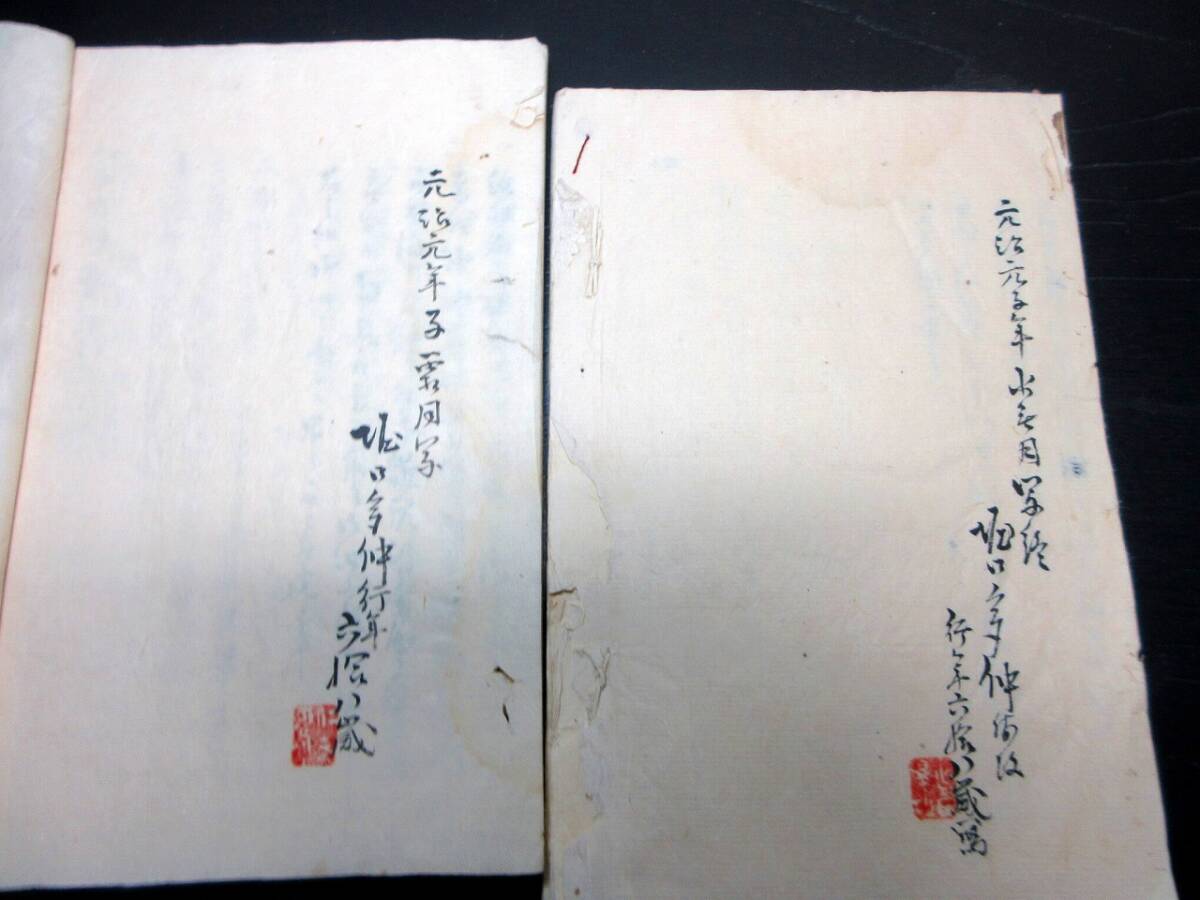 元治元子年水無月写終
堀口多仲
行年六拾八歳写
元治元年子霜月写
堀口多仲行年
六拾八歳